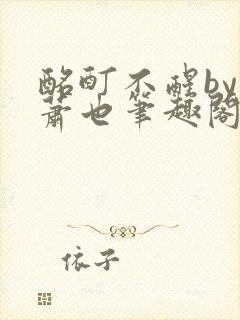 酩酊不醒by
萧也笔趣阁
依子